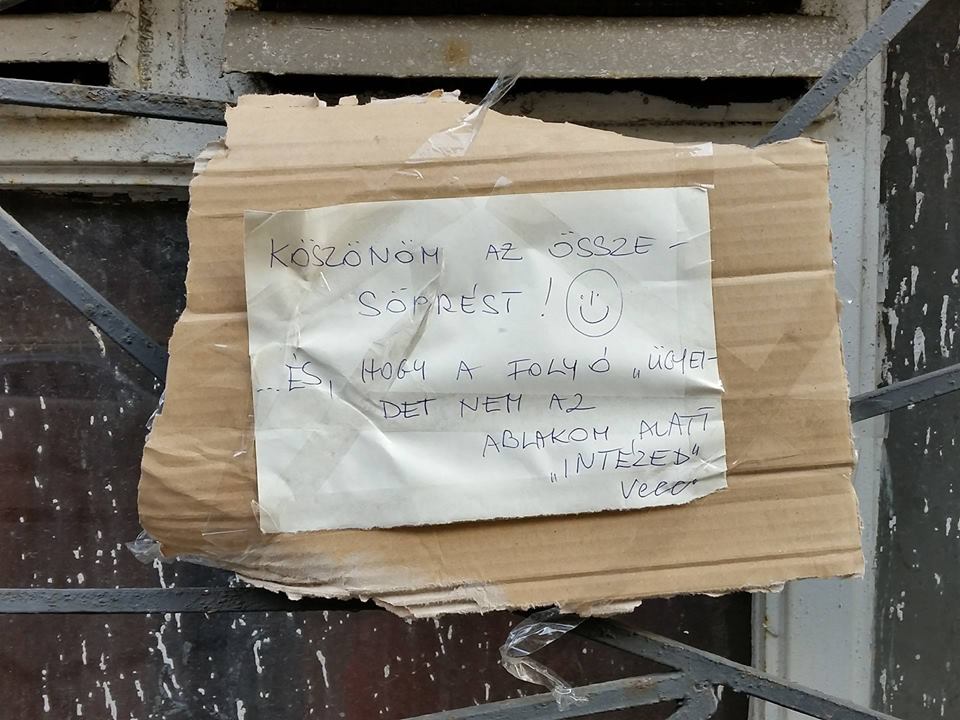 KÖSZÖNÖM AZ ÖSSZE-
SÖPRÉST!
...ÉS, HOGY A FOLYÓ „ÜGYEI-
DET NEM AZ
ABLAKOM ALATT
„INTÉZED"